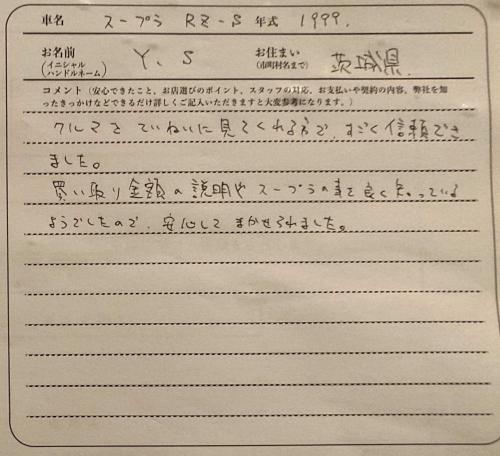 車名 スープラ RZ-S 年式 1999.
お名前 (イニシャル ハンドルネーム) Y、S お住まい (市町村名まで) 茨城県
コメント(安心できたこと、お店選びのポイント、スタッフの対応、お支払いや契約の内容、弊社を知
ったきっかけなどできるだけ詳しくご記入いただきますと大変参考になります。)
クルマを ていねいに 見てくれる方で、すごく 信頼でき
ました。
買い取り金額の説明や スープラの事を良く知っている
ようでしたので、安心して まかせられました。